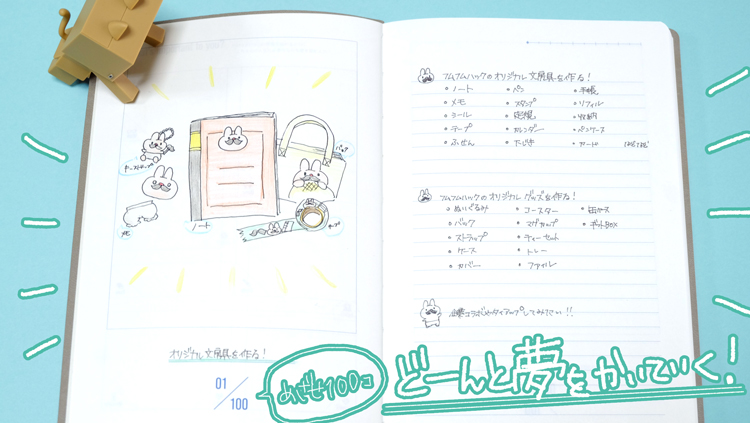 キーストラップ
バック
メモ
ノート
テープ
オリジナル文房具を作る!
01/100
フムフムハックのオリジナル文房具を作る!
・ノート ・ペン ・手帳
・メモ ・スタンプ ・リフィル
・シール ・定規 ・収納
・テープ ・カレンダー ・ペンケース
・ふせん ・下じき ・カード
フムフムハックのオリジナルグッズを作る!
・ぬいぐるみ ・コースター ・缶ケース
・バック ・マグカップ ・ギフトBOX
・ストラップ ・ティーセット
・ケース ・トレー
・カバー ・ファイル
企業コラボやタイアップしてみたい!!
めざせ100コ
どーんと夢をかいていく!